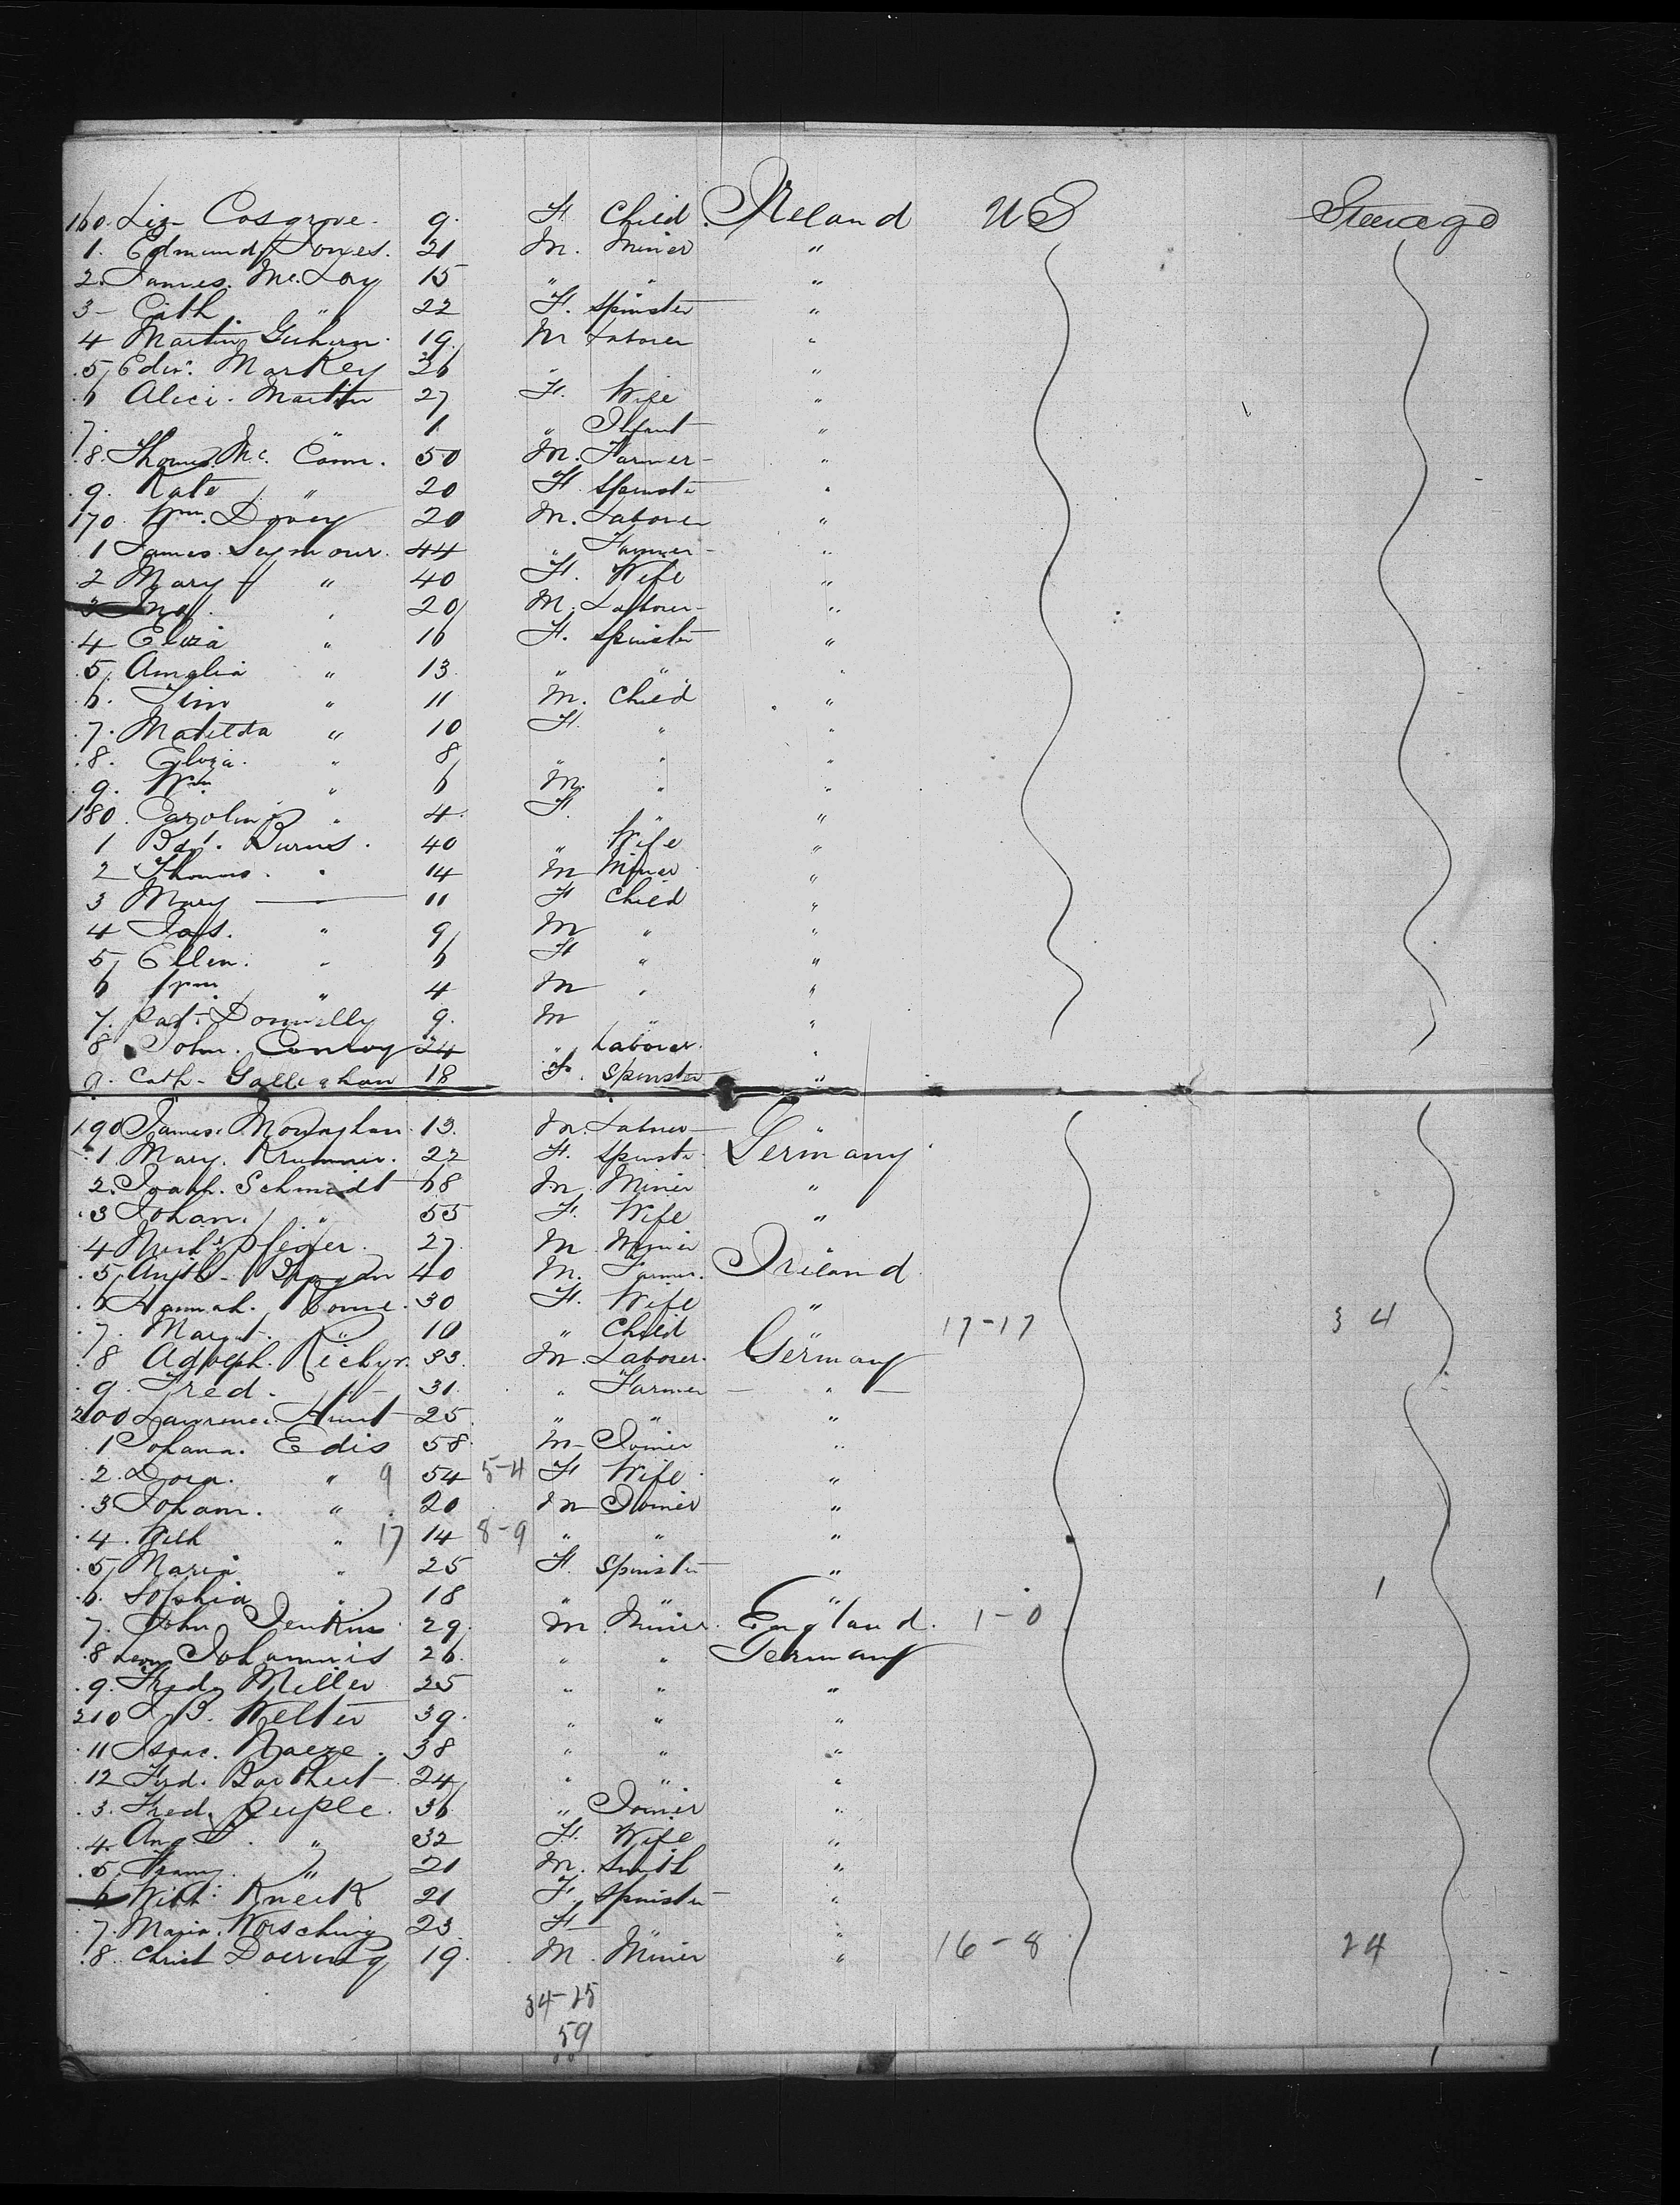 160. Liz Cosgrove. 9. F. Child. Ireland U S Steerage
1. Edmund Jones. 21 M. Miner "
2. James. McLoy 15 " " "
3 - Cath " 22 F. Spinster "
4 Martin 19. M Laborer "
5, Edw. Markey 26 " "
6 Alice. Martin 27 F. Wife "
7. " 1 " Infant "
8. Thomas. Mc. Cann. 50 M. Farmer - "
9. Kate " 20 F. Spinster "
170. Wm. 20 M. Laborer "
1 James. Seymour. 44 " Farmer - "
2 Mary " 40 F. Wife "
3 " 20 M. Laborer - "
4 Eliza " 16 F. Spinster "
5, Amelia " 13 " " "
6. Jim " 11 M. Child "
7. Matilda " 10 F. " "
8. Eliza. " 8 " " "
9. Wm. " 6 M. " "
180. Caroline " 4. F. " "
1 Bdt. Burns. 40 " Wife "
2 Thomas. " 14 M Miner "
3 Mary — 11 F Child "
4 Jas. " 9 M " "
5, Ellen. " 6 F " "
6 Wm " 4 M " "
7. Pat. Donnelly 9. M " "
8 John. Conroy 24 " Laborer. "
9. Cath - Galleghan 18 F. Spinster "
190 James. Monaghan. 13. M. Laborer -
1 Mary. 22 F. Spinster. Germany
2. Schmidt 68 M Miner "
3 Johan. " 55 F. Wife "
4 27. M. Miner
5, 40 M. Farmer. Ireland
6 Hannah. 30 F. Wife "
7. Margt. " 10 " Child 17-17 34
8 Adolph. 33. M. Laborer. Germany
9. Fred. - " - 31. " Farmer - " -
200 Lawrence. Hunt 25. " " "
1 Johann. Edis 58. M - Joiner "
2. Dora. " 9 54 5-4 F Wife. "
3 Johann. " 20 M Joiner "
4. " 17 14 8-9 " " "
5, Maria " 25 F. Spinster "
6. Sophia " 18 " " " 1
7. John Jenkins 29. M Miner. England. 1-0
8 Johannis 26. " " Germany
9. Fred. Miller 25 " " "
210 J B. Welter 39. " " "
11 Isaac. 38 " " "
12 Ferd. 24, " " "
3. Fred. Peuple. 36 " Joiner "
4. " 32 F. Wife "
5. " 21 M. Smith "
6 21 F. Spinster "
7. Maria. 23 F " "
8. Christ Doering 19. M. Miner " 16-8 24
34-25
59